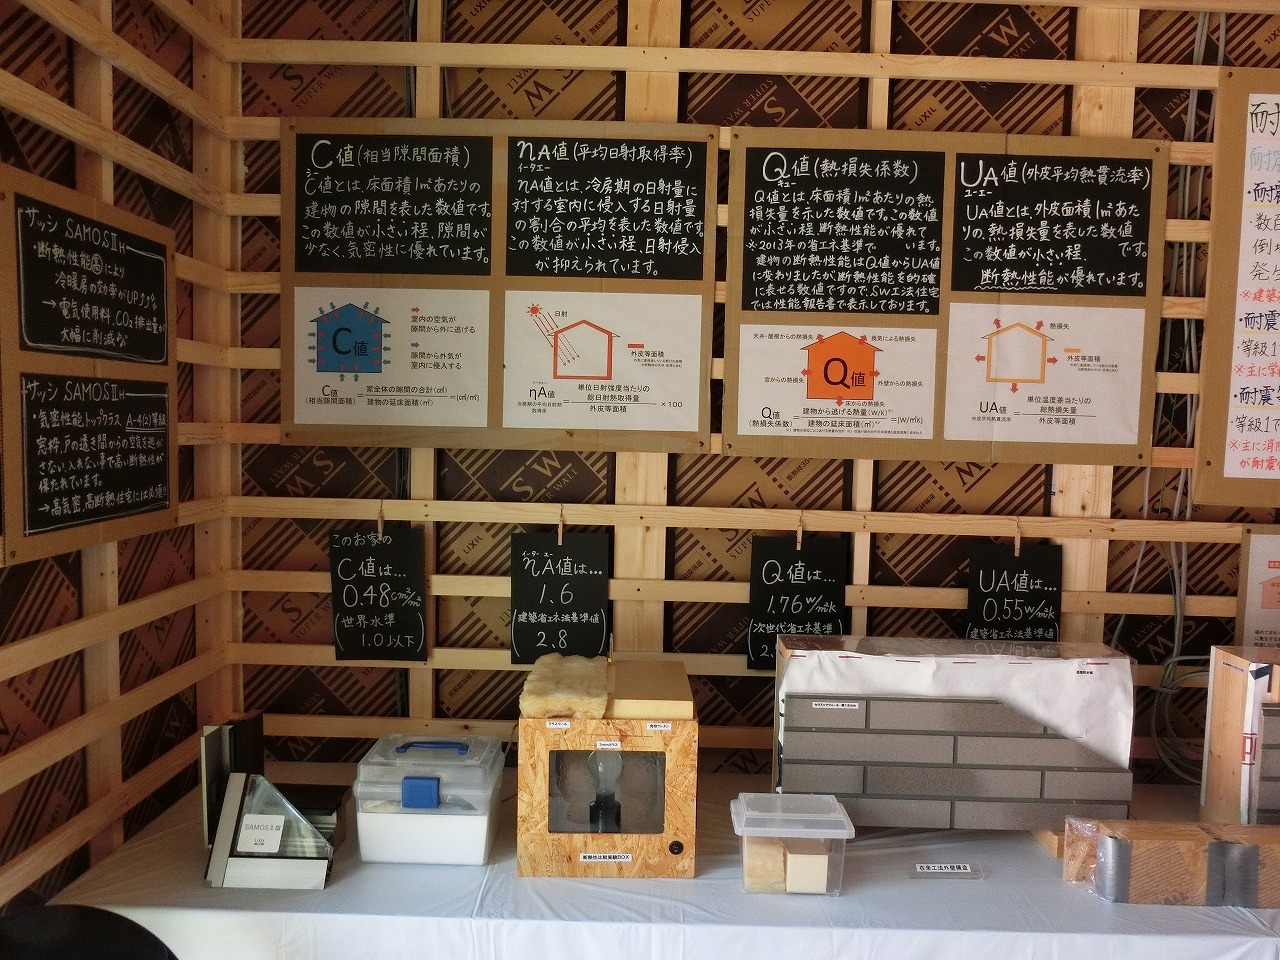 サッシ SAMOSⅡH
・断熱性能(高)により
冷暖房の効率がUP↗↗
→電気使用料、CO₂排出量が
大幅に削減など
サッシ SAMOSⅡH
・気密性能トップクラス A-4(2)等級
窓枠、戸の透き間からの空気を逃が
さない、入れない事で高い断熱性が
保たれています。
→高気密、高断熱住宅には必須!!
C値(相当隙間面積)
シー
C値とは、床面積1㎡あたりの
建物の隙間を表した数値です。
この数値が小さい程、隙間が
少なく、気密性に優れています。
室内の空気が
隙間から外に逃げる
隙間から外気が
室内に侵入する
C値
C値
(相当隙間面積)
= 家全体の隙間の合計(c㎡)
建物の延床面積(㎡)
=(c㎡/㎡)
ηA値(平均日射取得率)
イータエー
ηA値とは、冷房期の日射量に
対する室内に侵入する日射量
の割合の平均を表した数値です。
この数値が小さい程、日射侵入
が抑えられています。
日射
外皮等面積
ηA値
冷房期の平均日射熱
取得率
= 単位日射強度当たりの
総日射熱取得量
外皮等面積
× 100
Q値(熱損失係数)
キュー
Q値とは、床面積1㎡あたりの熱
損失量を示した数値です。この数値
が小さい程、断熱性能が優れて
います。
※2013年の省エネ基準で
建物の断熱性能はQ値からUA値
に変わりましたが断熱性能を的確
に表せる数値ですので、SW工法住宅
では性能報告書で表示しております。
天井・屋根からの熱損失
換気による熱損失
窓からの熱損失
外壁からの熱損失
床からの熱損失
Q値
Q値
(熱損失係数)
= 建物から逃げる熱量(W/K)
建物の延床面積(㎡)
=(W/㎡K)
UA値(外皮平均熱貫流率)
ユーエー
UA値とは、外皮面積1㎡あた
りの、熱損失量を表した数値
です。
この数値が小さい程、
断熱性能が優れています。
熱損失
外皮等面積
UA値
外皮平均熱貫流率
= 単位温度差当たりの
総熱損失量
外皮等面積
このお家の
C値は…
0.48c㎡/㎡
(世界水準
1.0以下)
イーター エー
ηA値は…
1.6
(建築省エネ法基準値
2.8)
Q値は…
1.76w/㎡k
(次世代省エネ基準
UA値は…
0.55w/㎡k
(建築省エネ法基準値
グラスウール
発泡ウレタン
3mmガラス
断熱性比較実験BOX
在来工法外壁構造
SAMOSⅡ
LIXIL
SW
SUPER WALL
LIXIL